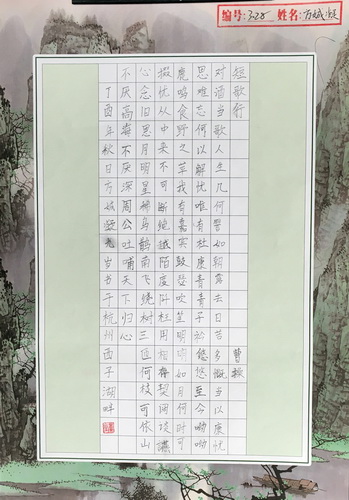 编号: 328 姓名: 方
短歌行 曹操
对酒当歌人生几何譬如朝露去日苦多慨当以慷忧
思难忘何以解忧唯有杜康青青子衿悠悠至今呦呦
鹿鸣食野之苹我有嘉宾鼓瑟吹笙明明如月何时可
掇忧从中来不断绝越陌度阡枉用相存契阔谈讌
心念旧恩月明星稀乌鹊南飞绕树三匝何枝可依山
不厌高海不厌深周公吐哺天下归心
丁酉年秋日方岁书于杭州西子湖畔